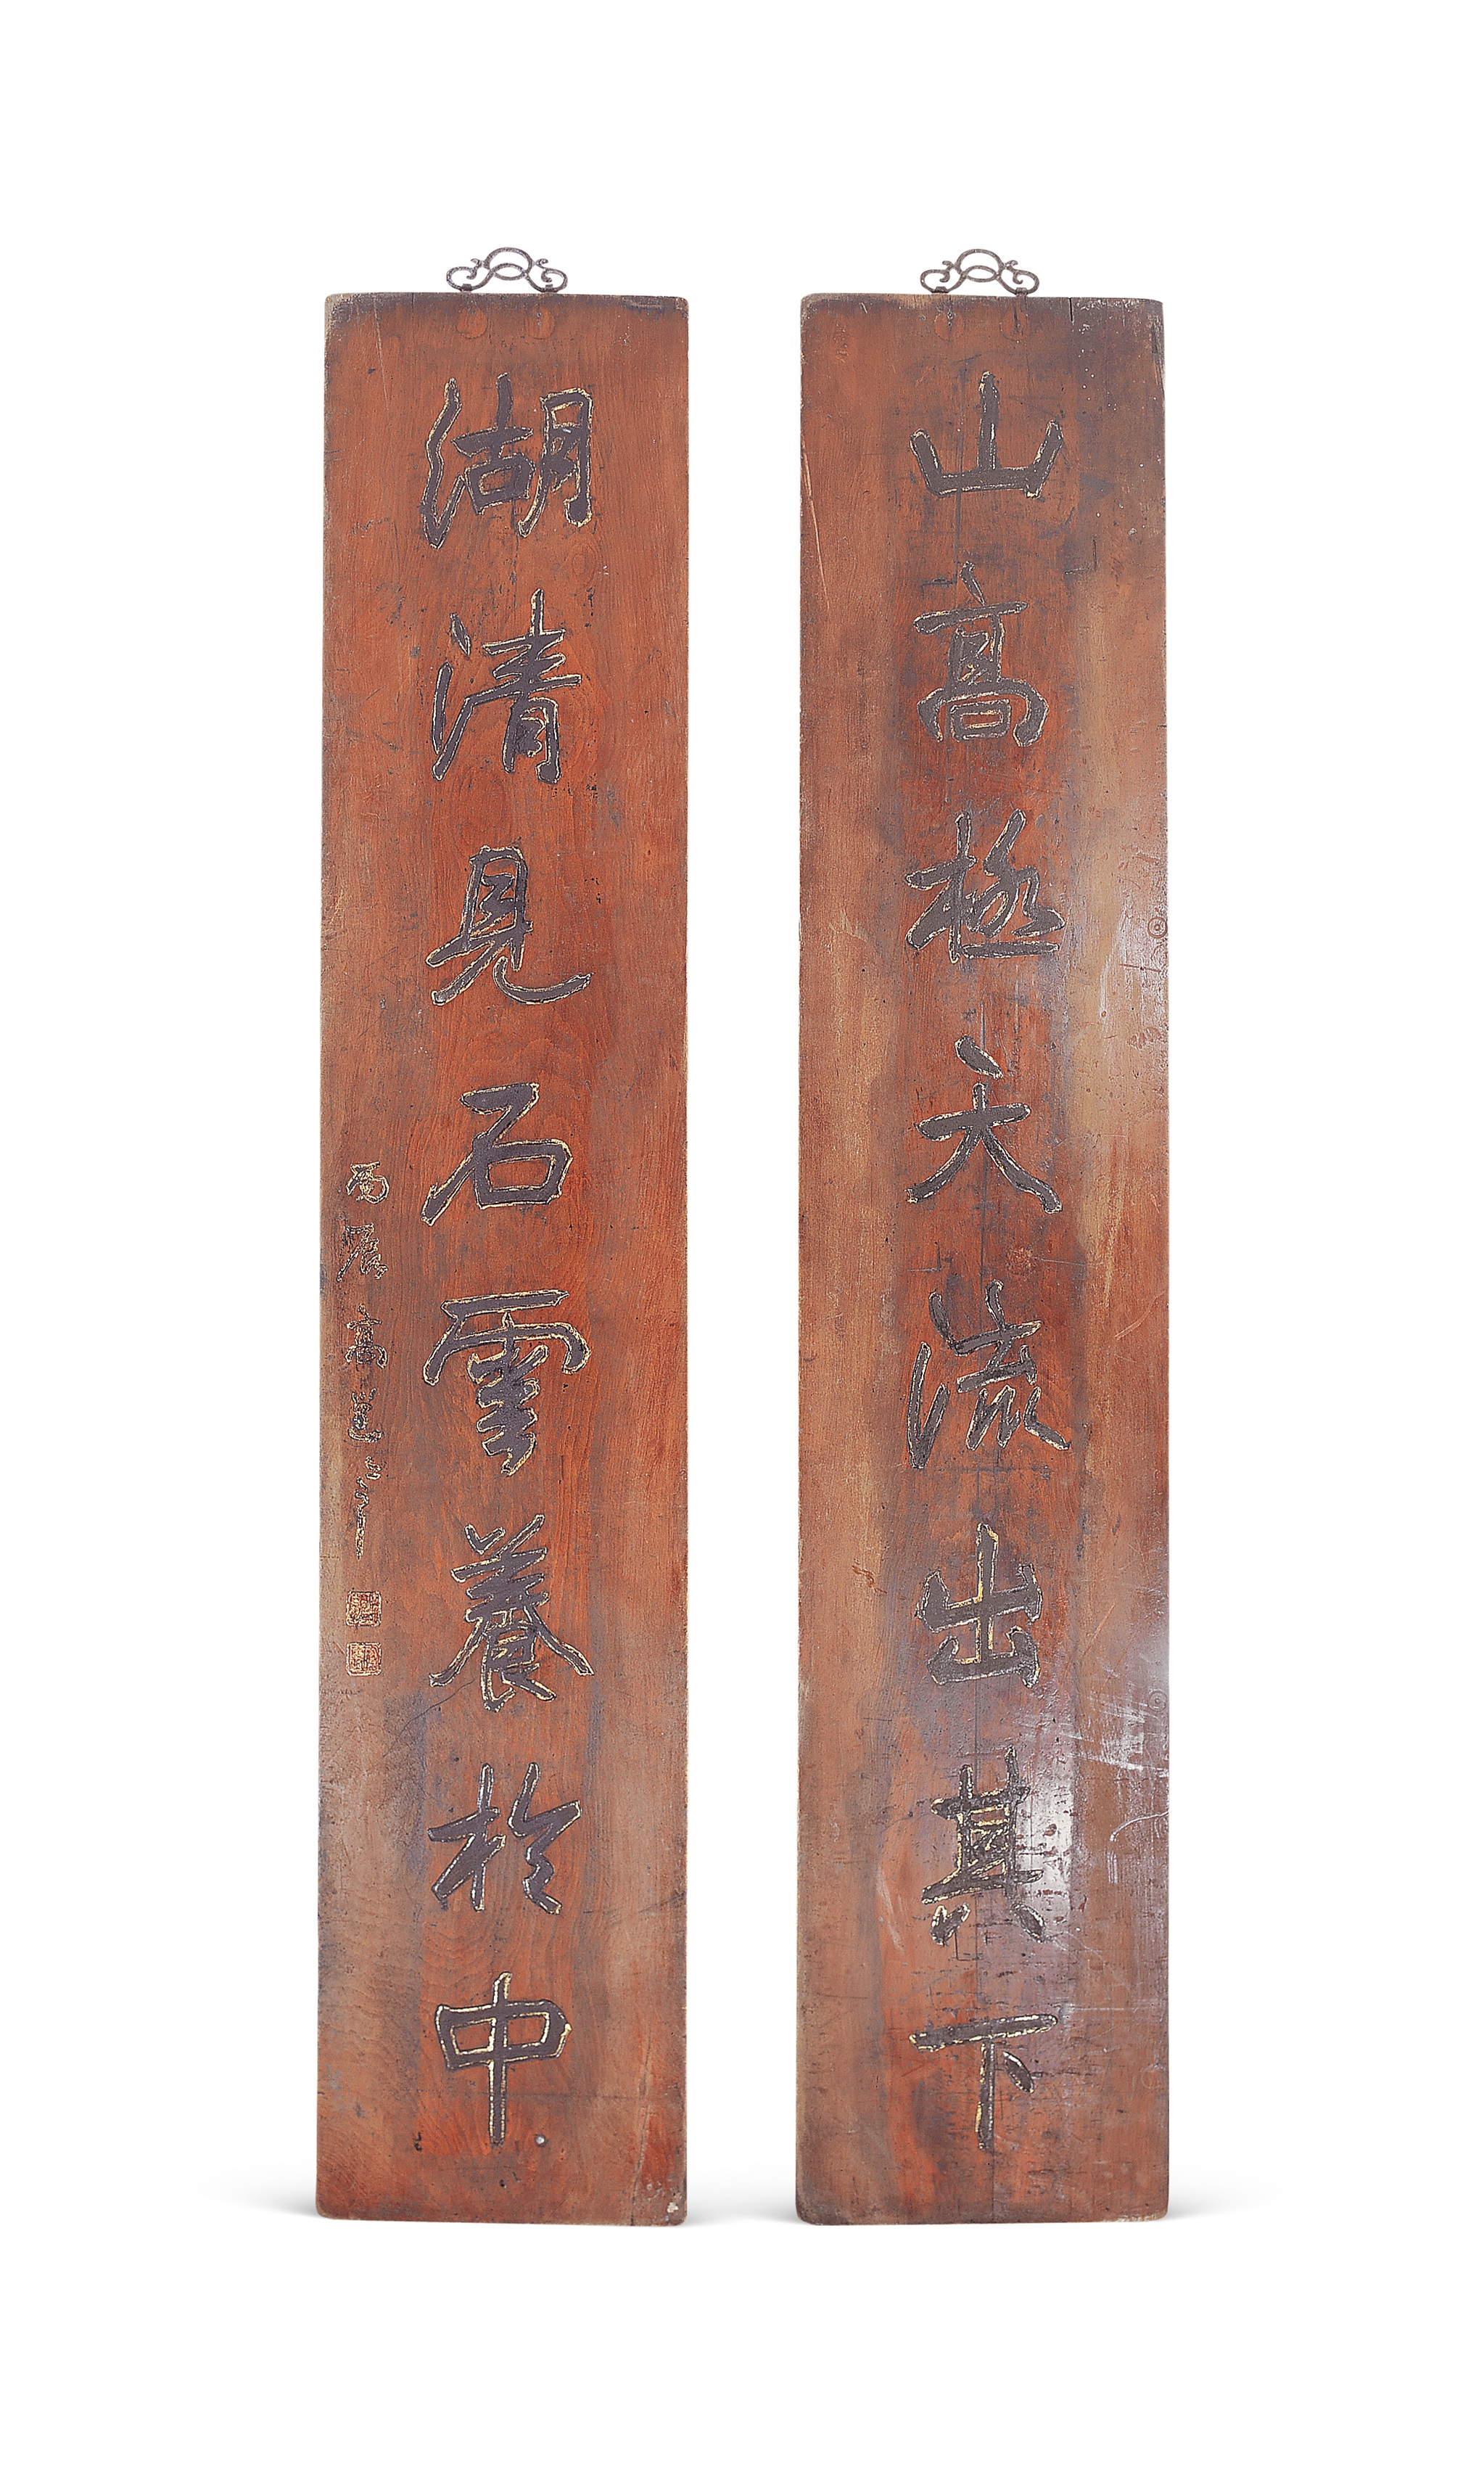 山高極天流出其下
湖清見石雲養於中
丙辰高邕